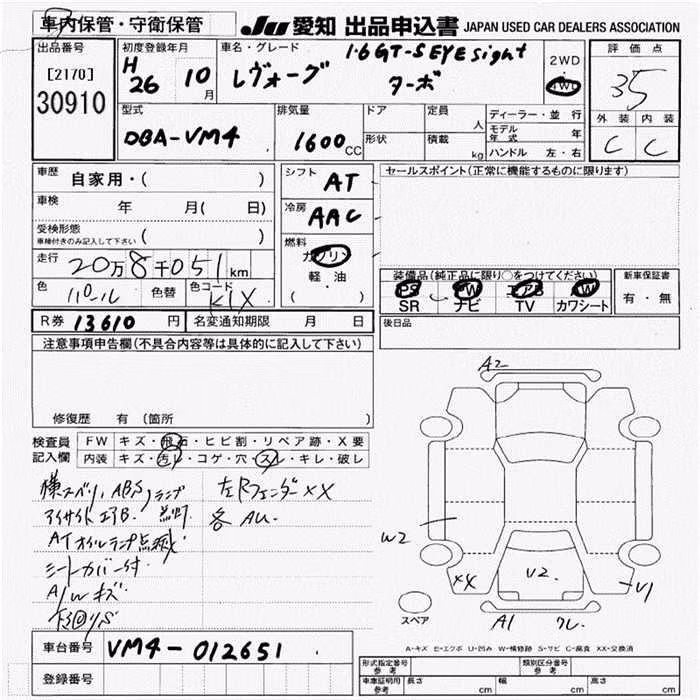 車内保管・守衛保管
JU 愛知 出品申込書 JAPAN USED CAR DEALERS ASSOCIATION
出品番号 初度登録年月 車名・グレード 2WD 評価点
[2170] H 26 10月 レヴォーグ 1.6GT-S EYE sight 4WD 35
30910 ターボ
型式 排気量 ドア 定員 人 ディーラー・並行 外装 内装
DBA-VM4 1600CC 形状 積載 kg モデル年式 年 C C
ハンドル 左・右
車歴 自家用・( ) シフト AT セールスポイント(正常に機能するものに限ります)
車検 年 月( 日) 冷房 AAC
受検形態 ( )
車検付きのみ記入して下さい
燃料 ガソリン
走行 20万8千051km 軽・油
( )
装備品(純正品に限り○をつけてください) 新車保証書
色 パール 色替 色コード K1X
PS PW エアB AW 有・無
SR ナビ TV カワシート
R券 13610 円 名変通知期限 月 日 後日品
注意事項申告欄(不具合内容等は具体的に記入して下さい)
修復歴 有 (箇所 )
検査員 FW キズ・飛石・ヒビ割・リペア跡・X要
記入欄 内装 キズ・汚レ・コゲ・穴・スレ・キレ・破レ
横スベリ、ABS、ランプ
アイサイト エアB. 点灯
ATオイルランプ点滅
シートカバー付
A/Wキズ
下回りS
左Rフェンダー××
各AU.
A2
W2
XX
U2.
U1
A1
スペア
A-キズ E-エクボ U-凹み W-補修跡 S-サビ C-腐食 XX-交換済
車台番号 VM4-012651
登録番号
形式指定番号 参考 類別区分番号 参考
車庫証明用 参考 長さ cm 幅 cm 高さ cm